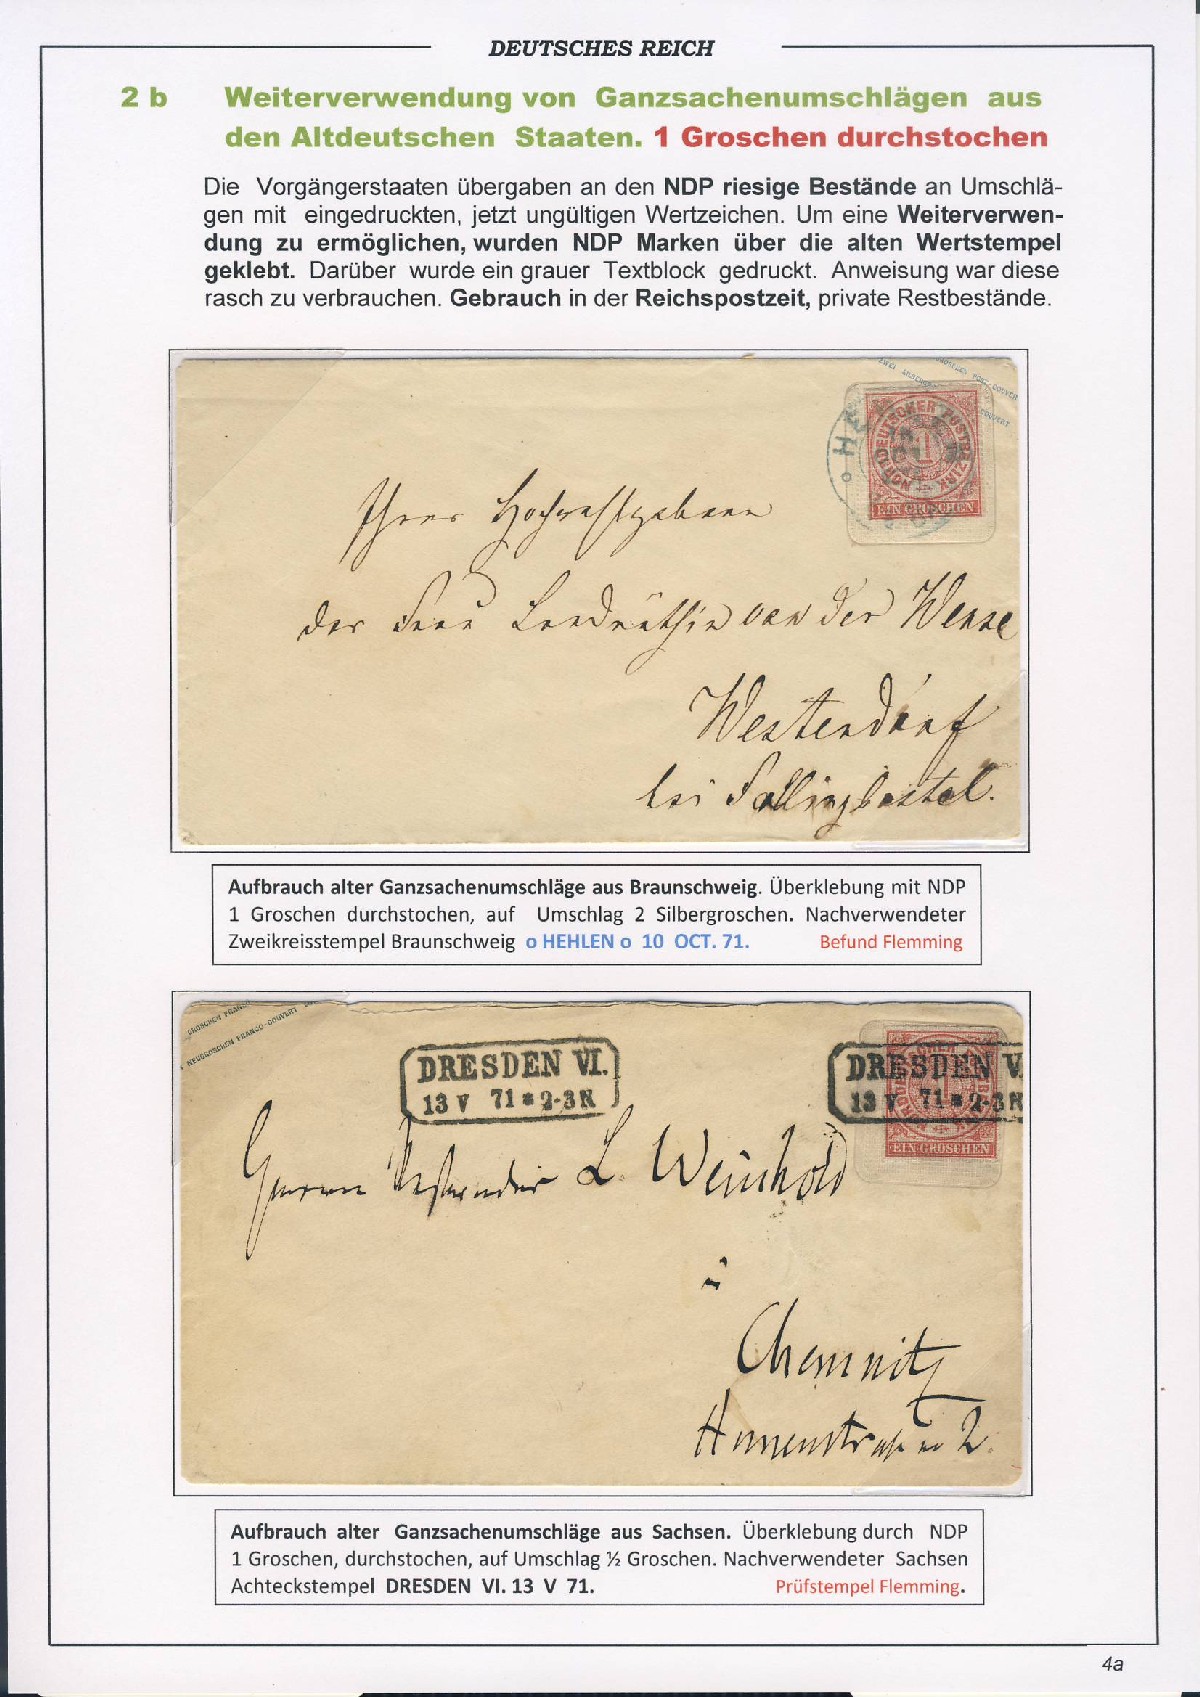 DEUTSCHES REICH
2 b Weiterverwendung von Ganzsachenumschlägen aus
den Altdeutschen Staaten. 1 Groschen durchstochen
Die Vorgängerstaaten übergaben an den NDP riesige Bestände an Umschlä-
gen mit eingedruckten, jetzt ungültigen Wertzeichen. Um eine Weiterverwen-
dung zu ermöglichen, wurden NDP Marken über die alten Wertstempel
geklebt. Darüber wurde ein grauer Textblock gedruckt. Anweisung war diese
rasch zu verbrauchen. Gebrauch in der Reichspostzeit, private Restbestände.
NORDDEUTSCHER POSTBEZIRK
1
EIN GROSCHEN
der Frau Landräthin von der Wense
Westendorf
bei Fallingbostel.
Aufbrauch alter Ganzsachenumschläge aus Braunschweig. Überklebung mit NDP
1 Groschen durchstochen, auf Umschlag 2 Silbergroschen. Nachverwendeter
Zweikreisstempel Braunschweig o HEHLEN o 10 OCT. 71. Befund Flemming
GROSCHEN FRANCO
NEUGROSCHEN FRANCO-COUVERT
DRESDEN VI.
13 V 71 * 2-3 N
DRESDEN V
13 V 71 * 2-3 N
EIN GROSCHEN
Herrn L. Weinhold
in
Chemnitz
2.
Aufbrauch alter Ganzsachenumschläge aus Sachsen. Überklebung durch NDP
1 Groschen, durchstochen, auf Umschlag ½ Groschen. Nachverwendeter Sachsen
Achteckstempel DRESDEN VI. 13 V 71. Prüfstempel Flemming.
4a